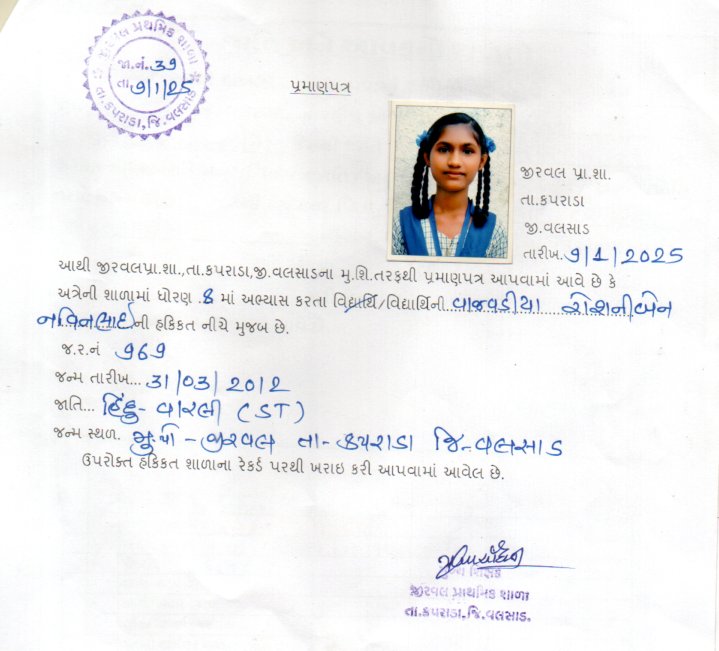 જીરવલ પ્રાથમિક શાળા
જા.નં. 39
તા. 9/1/25
તા.કપરાડા, જિ.વલસાડ
પ્રમાણપત્ર
જીરવલ પ્રા.શા.
તા.કપરાડા
જી.વલસાડ
તારીખ. 9/1/2025
આથી જીરવલપ્રા.શા.,તા.કપરાડા,જી.વલસાડના મુ.શિ.તરફથી પ્રમાણપત્ર આપવામાં આવે છે કે
અત્રેની શાળામાં ધોરણ .8 માં અભ્યાસ કરતા વિદ્યાર્થિ/વિદ્યાર્થિની. વાજવડીયા રોશનીબેન
નવિનભાઈની હકિકત નીચે મુજબ છે.
જ.ર.નં 969
જન્મ તારીખ... 31/03/2012
જાતિ... હિંદુ- વારલી (ST)
જન્મ સ્થળ. મુ.પો - જીરવલ તા- કપરાડા જિ-વલસાડ
ઉપરોક્ત હકિકત શાળાના રેકર્ડ પરથી ખરાઇ કરી આપવામાં આવેલ છે.
મુખ્ય શિક્ષક
જીરવલ પ્રાથમિક શાળા
તા.કપરાડા,જિ.વલસાડ.